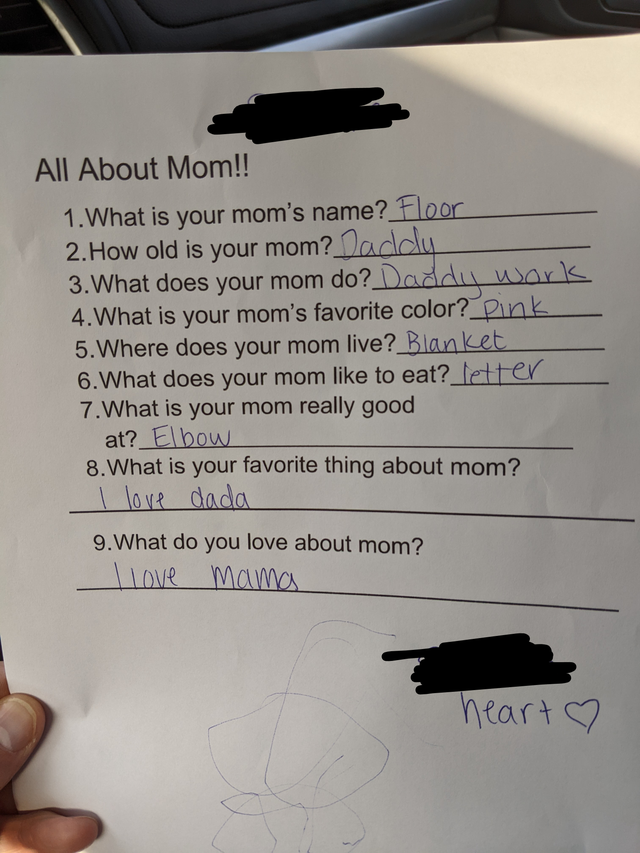 All About Mom!!
1.What is your mom's name? Floor
2.How old is your mom? Daddy
3.What does your mom do? Daddy work
4.What is your mom's favorite color? pink
5.Where does your mom live? Blanket
6.What does your mom like to eat? letter
7.What is your mom really good
at? Elbow
8.What is your favorite thing about mom?
I love dada
9.What do you love about mom?
I love mama
heart